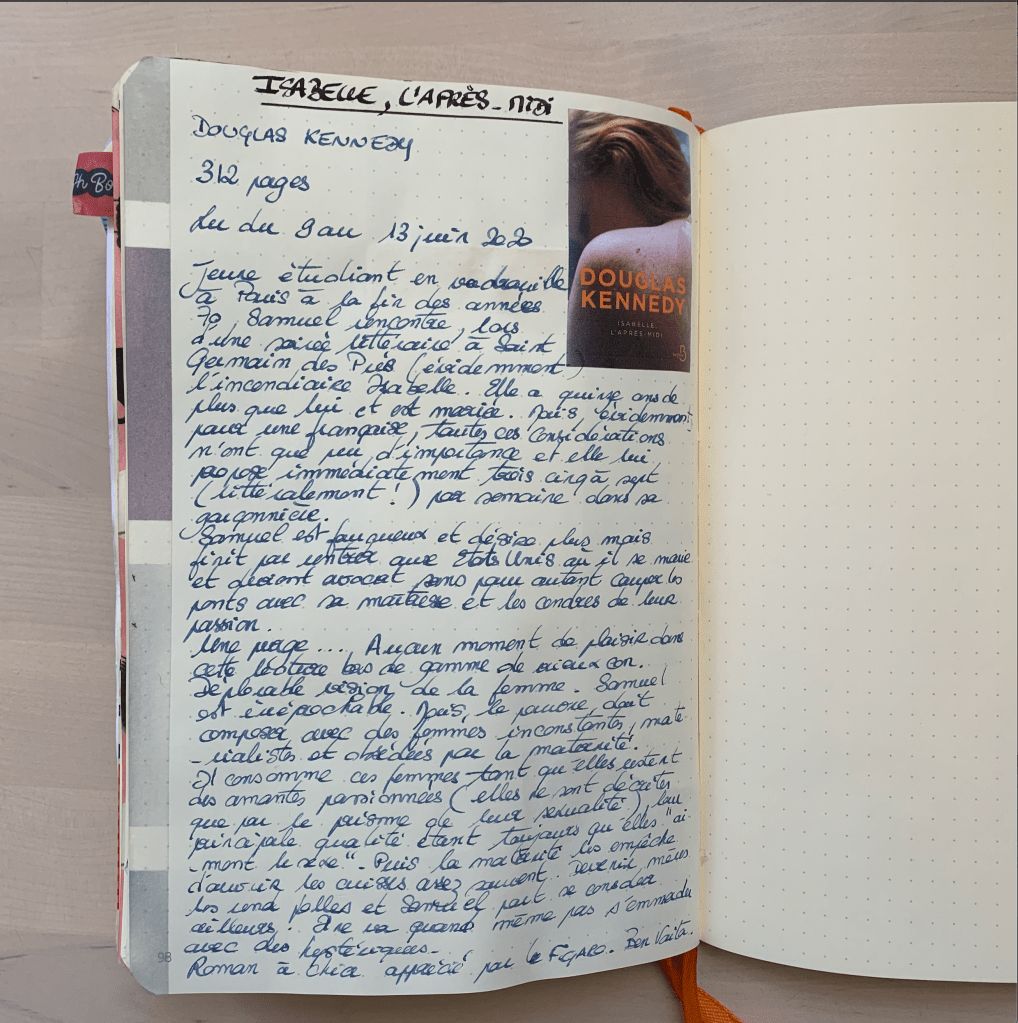 ISABELLE, L'APRÈS-MIDI
DOUGLAS KENNEDY
312 pages
Lu du 9 au 13 juin 2020
DOUGLAS
KENNEDY
ISABELLE,
L'APRÈS-MIDI
Jeune étudiant en vadrouille
à Paris à la fin des années
70 Samuel rencontre, lors
d'une soirée littéraire à Saint
Germain des Prés (évidemment)
l'incendiaire Isabelle.. Elle a quinze ans de
plus que lui et est mariée. Mais, évidemment,
pour une française, toutes ces considérations
n'ont que peu d'importance et elle lui
propose immédiatement trois cinq à sept
(littéralement!) par semaine dans sa
garçonnière.
Samuel est fougueux et désire plus mais
finit par rentrer aux Etats Unis où il se marie
et devient avocat sans pour autant couper les
ponts avec sa maîtresse et les cendres de leur
passion.
Une purge.... Aucun moment de plaisir dans
cette lecture bas de gamme de vieux con.
Déplorable vision de la femme. Samuel
est irréprochable. Mais, le pauvre, doit
composer avec des femmes inconstantes, maté-
-rialistes et obsédées par la maternité.
Il consomme ces femmes tant qu'elles restent
des amantes passionnées (elles ne sont décrites
que par le prisme de leur sexualité), leur
principale qualité étant toujours qu'elles "ai-
-ment le sexe". Puis la maternité les empêche
d'ouvrir les cuisses assez souvent. Devenir mères
les rend folles et Samuel part se consoler
ailleurs. Il ne va quand même pas s'emmerder
avec des hystériques.
Roman à chier apprécié par le Figaro. Ben Voilà.
98